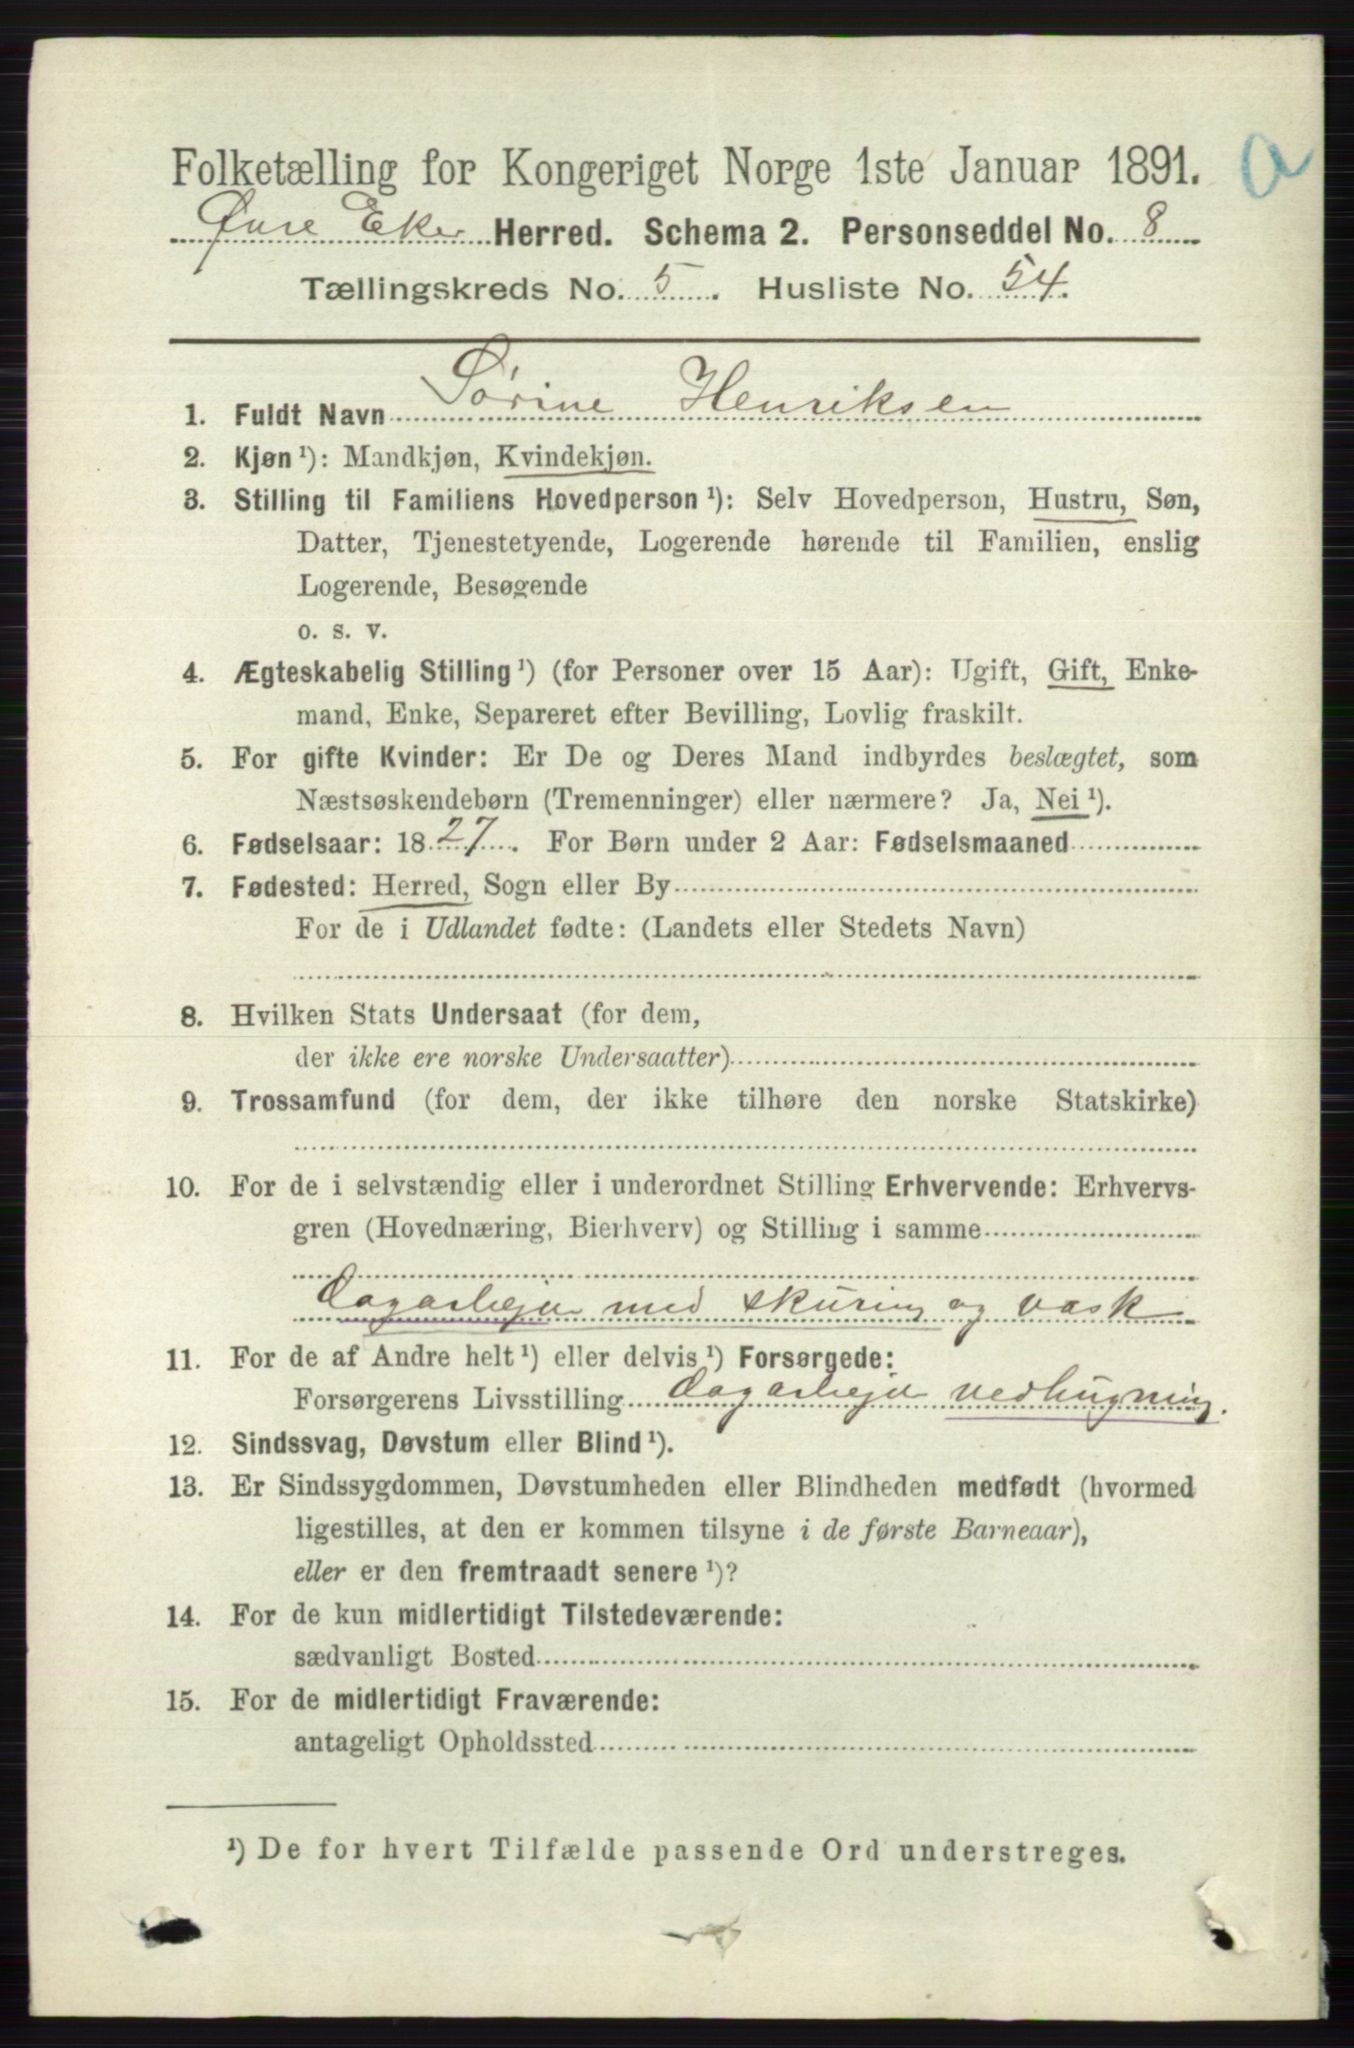 Folketælling for Kongeriget Norge 1ste Januar 1891.
a
Øvre Eker Herred. Schema 2. Personseddel No. 8
Tællingskreds No. 5. Husliste No. 54.
1. Fuldt Navn Sørine Henriksen
2. Kjøn ¹): Mandkjøn, Kvindekjøn.
3. Stilling til Familiens Hovedperson ¹): Selv Hovedperson, Hustru, Søn,
Datter, Tjenestetyende, Logerende hørende til Familien, enslig
Logerende, Besøgende
o. s. v.
4. Ægteskabelig Stilling ¹) (for Personer over 15 Aar): Ugift, Gift, Enke-
mand, Enke, Separeret efter Bevilling, Lovlig fraskilt.
5. For gifte Kvinder: Er De og Deres Mand indbyrdes beslægtet, som
Næstsøskendebørn (Tremenninger) eller nærmere? Ja, Nei ¹).
6. Fødselsaar: 1827. For Børn under 2 Aar: Fødselsmaaned
7. Fødested: Herred, Sogn eller By
For de i Udlandet fødte: (Landets eller Stedets Navn)
8. Hvilken Stats Undersaat (for dem,
der ikke ere norske Undersaatter)
9. Trossamfund (for dem, der ikke tilhøre den norske Statskirke)
10. For de i selvstændig eller i underordnet Stilling Erhvervende: Erhvervs-
gren (Hovednæring, Bierhverv) og Stilling i samme
dagarbejde med skuring og vask
11. For de af Andre helt ¹) eller delvis ¹) Forsørgede:
Forsørgerens Livsstilling dagarbejde vedhugning.
12. Sindssvag, Døvstum eller Blind ¹).
13. Er Sindssygdommen, Døvstumheden eller Blindheden medfødt (hvormed
ligestilles, at den er kommen tilsyne i de første Barneaar),
eller er den fremtraadt senere ¹)?
14. For de kun midlertidigt Tilstedeværende:
sædvanligt Bosted
15. For de midlertidigt Fraværende:
antageligt Opholdssted
¹) De for hvert Tilfælde passende Ord understreges.